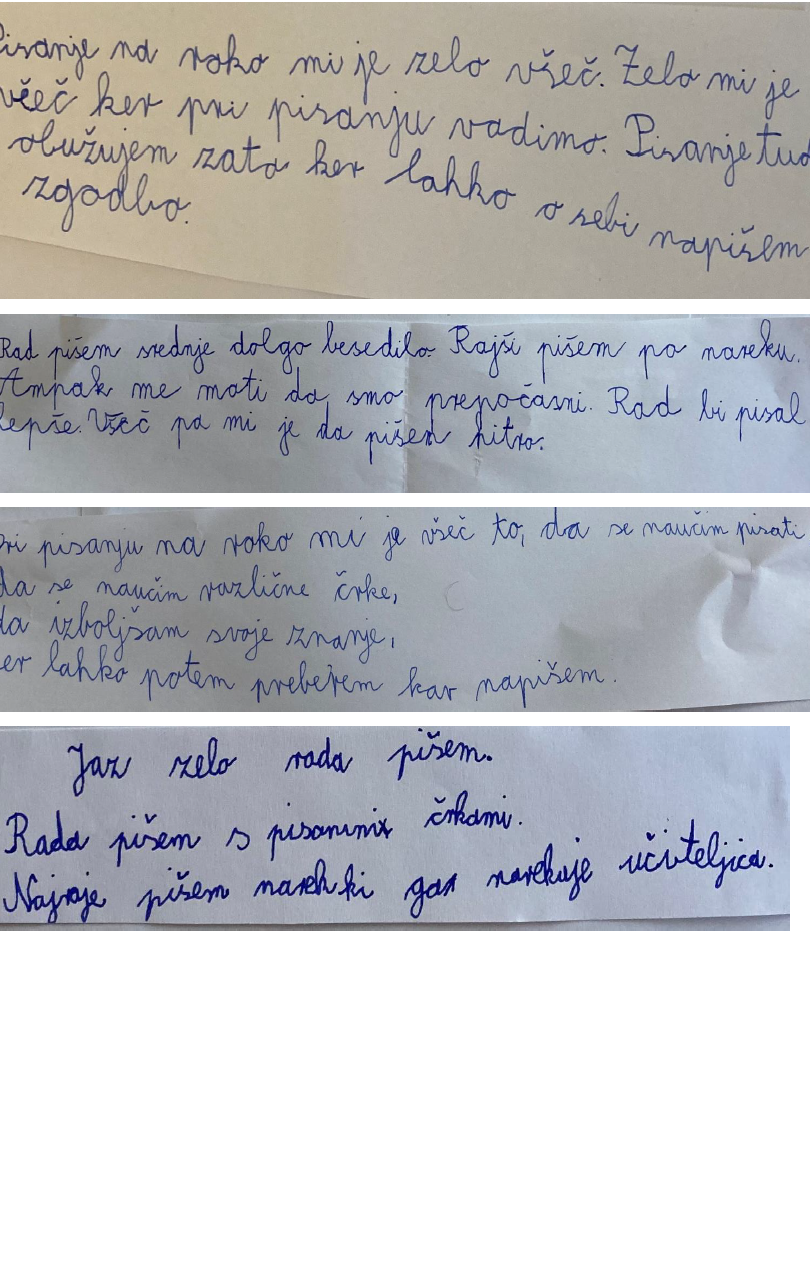 Pisanje na roko mi je zelo všeč. Zelo mi je
všeč ker pri pisanju vadimo. Pisanje tud
obužujem zato ker lahko o sebi napišem
zgodbo.
Rad pišem srednje dolgo besedilo Rajši pišem po nareku.
Ampak me moti da smo prepočasni. Rad bi pisal
lepše. Všeč pa mi je da pišem hitro.
pri pisanju na roko mi je všeč to, da se naučim pisati
da se naučim različne črke,
da izboljšam svoje znanje,
er lahko potem preberem kar napišem.
Jaz zelo rada pišem.
Rada pišem s pisanimi črkami.
Najraje pišem narek ki gar narekuje učiteljica.